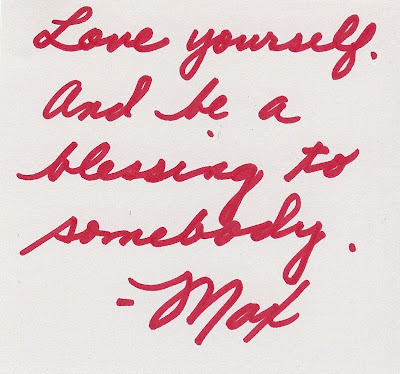 Love yourself.
And be a
blessing to
somebody.
-Max